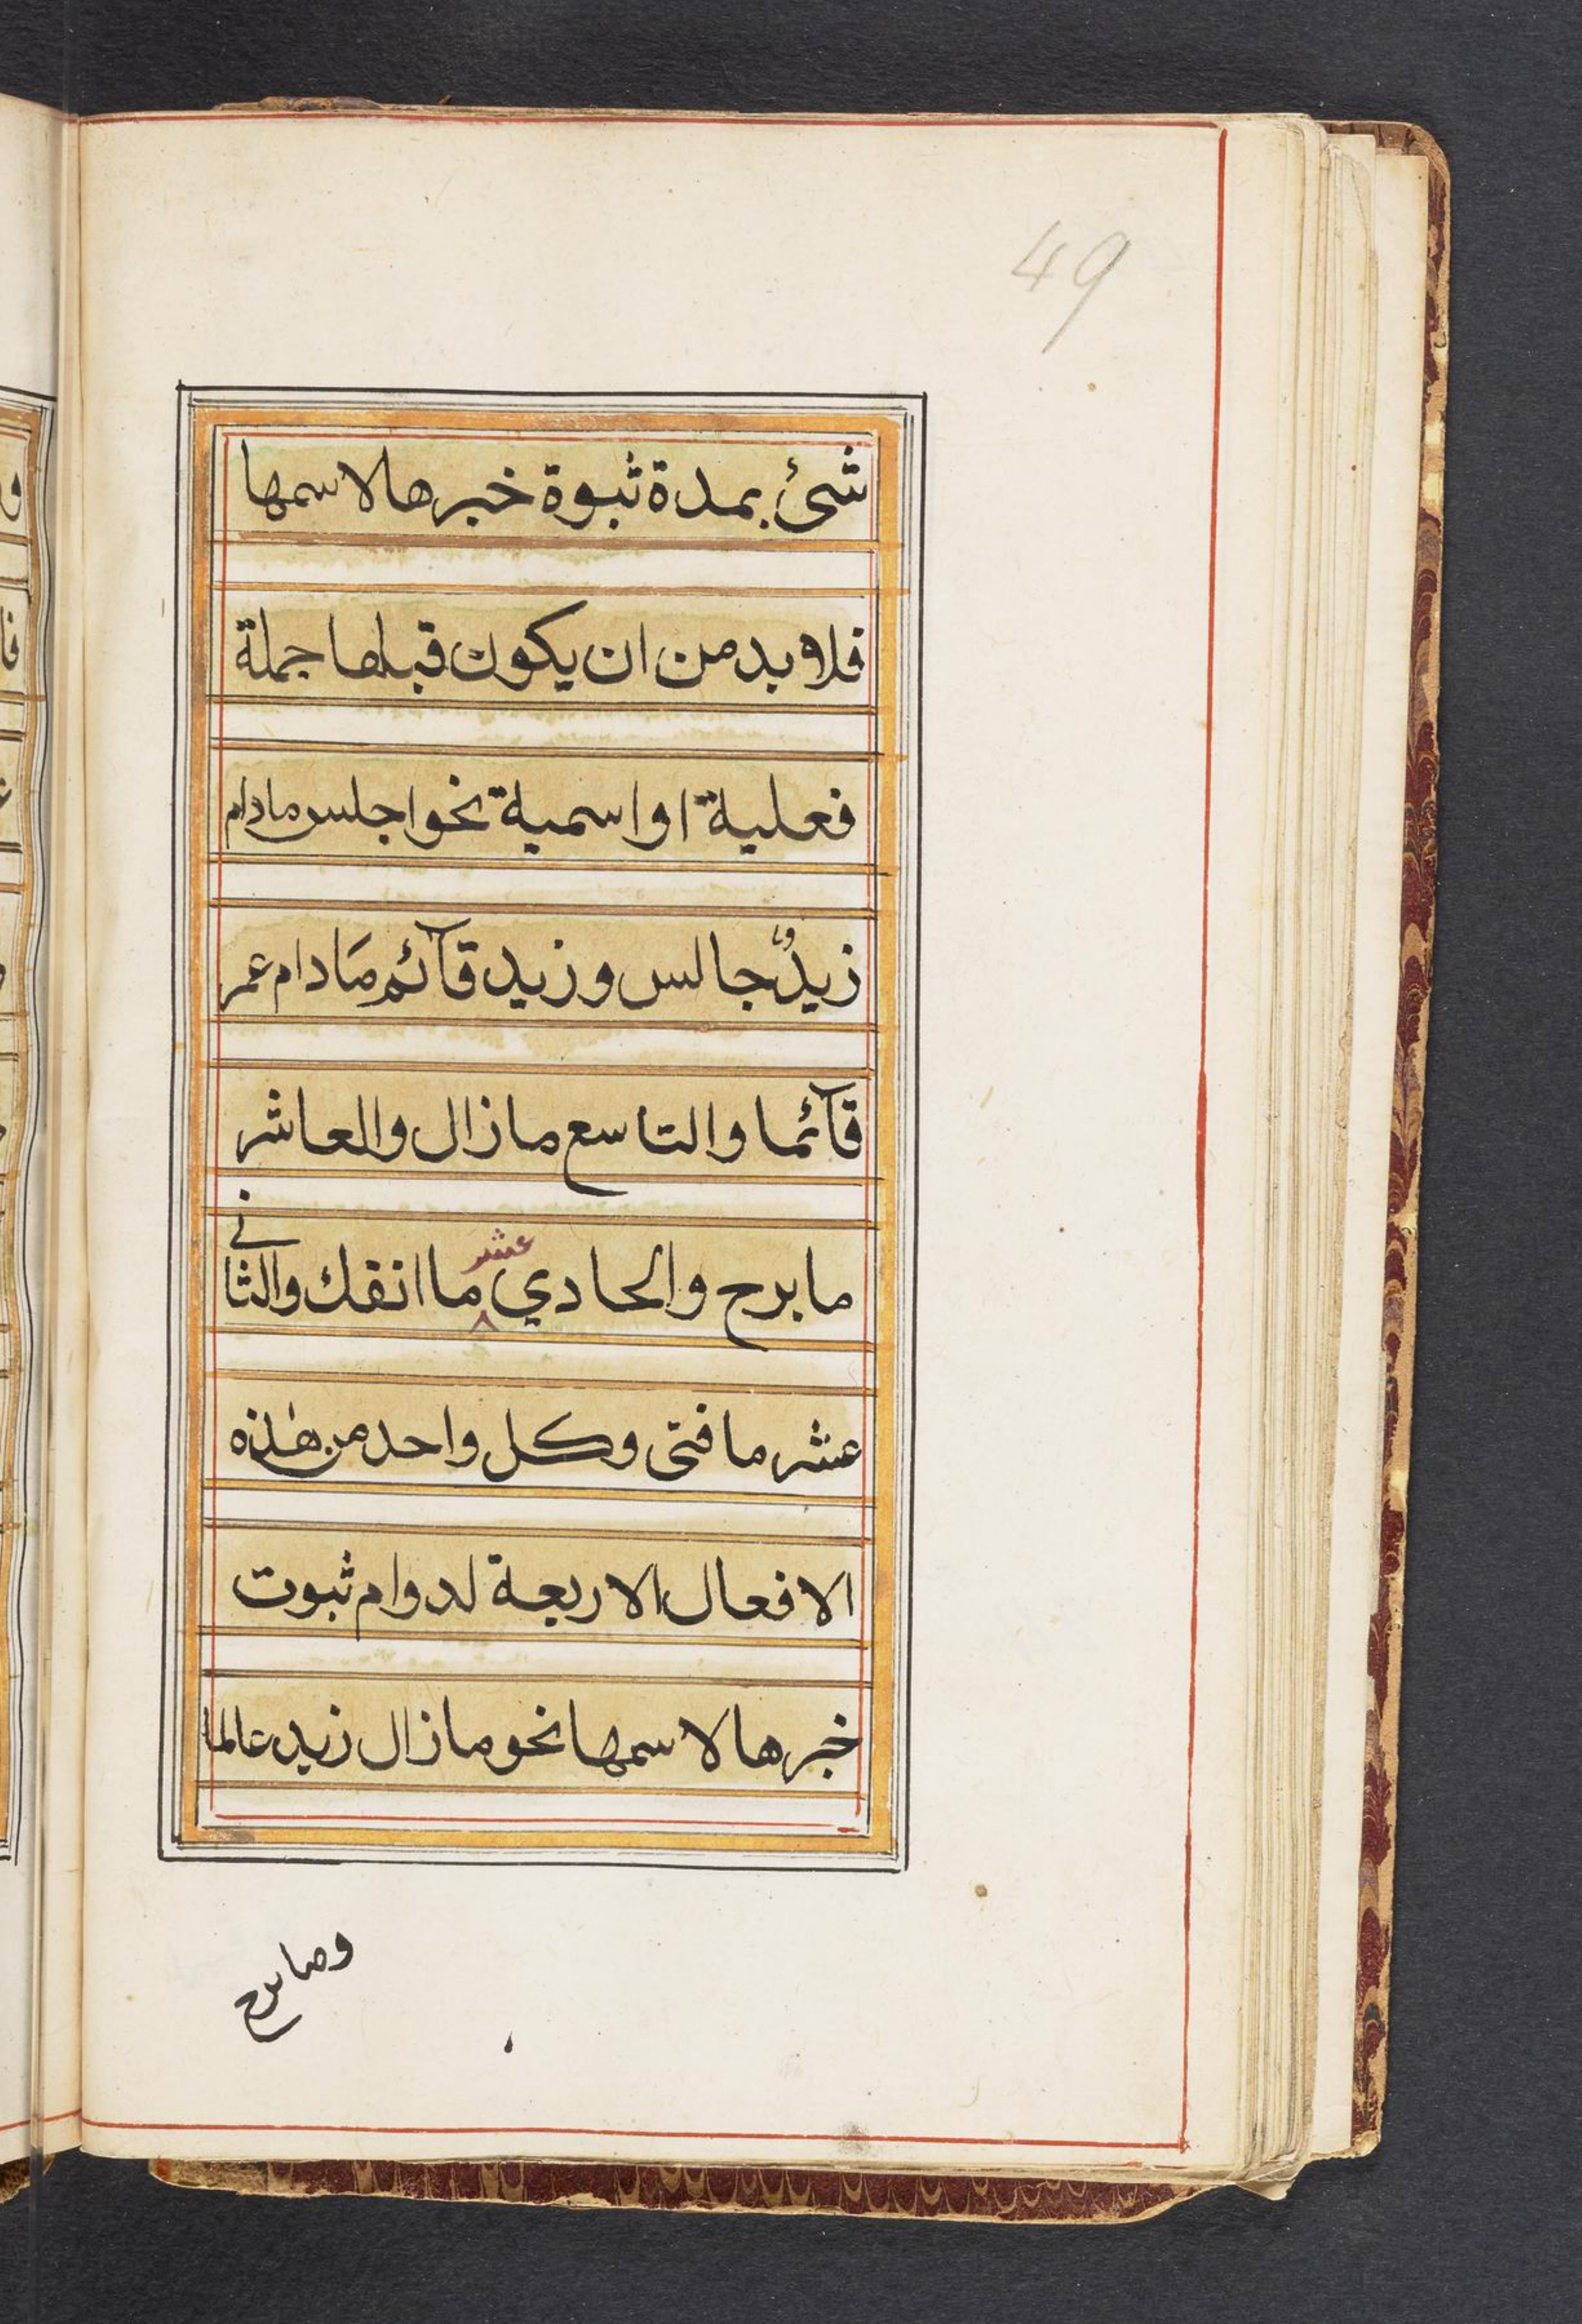 49
شئ بمدة ثبوة خبرها لاسمها
فلا بد من ان يكون قبلها جملة
فعلية او اسمية نحو اجلس مادام
زيدٌ جالس و زيد قآئم مَادام عمر
قآئما والتاسع مازال والعاشر
مابرح والحادي عشر ماانفك والثاني
عشر مافتى وكل واحد من هٰذه
الافعال الاربعة لدوام ثبوت
خبرها لاسمها نحو مازال زيد عالما
ومابرح